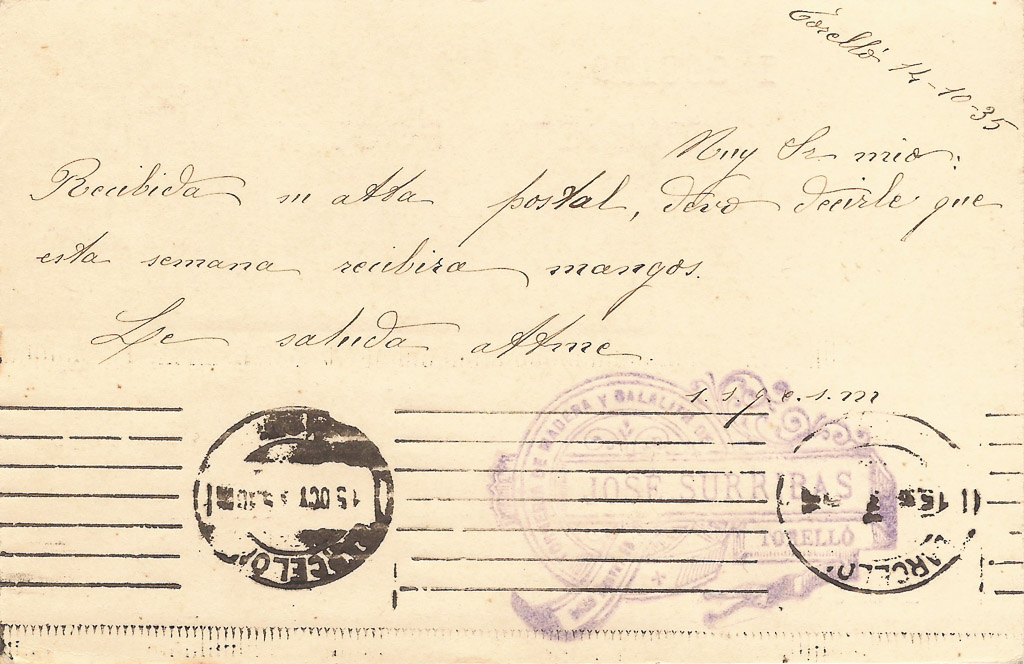 Torelló 14-10-35
Muy Sr mio:
Recibida su atta postal, devo decirle que
esta semana recibira mangos.
Le saluda attme
s. s. q. e. s. m
DE MADERA Y GALALITA DE
JOSÉ SURRIBAS
TORELLÓ
15 OCT
BARCELO
15
ARCELO